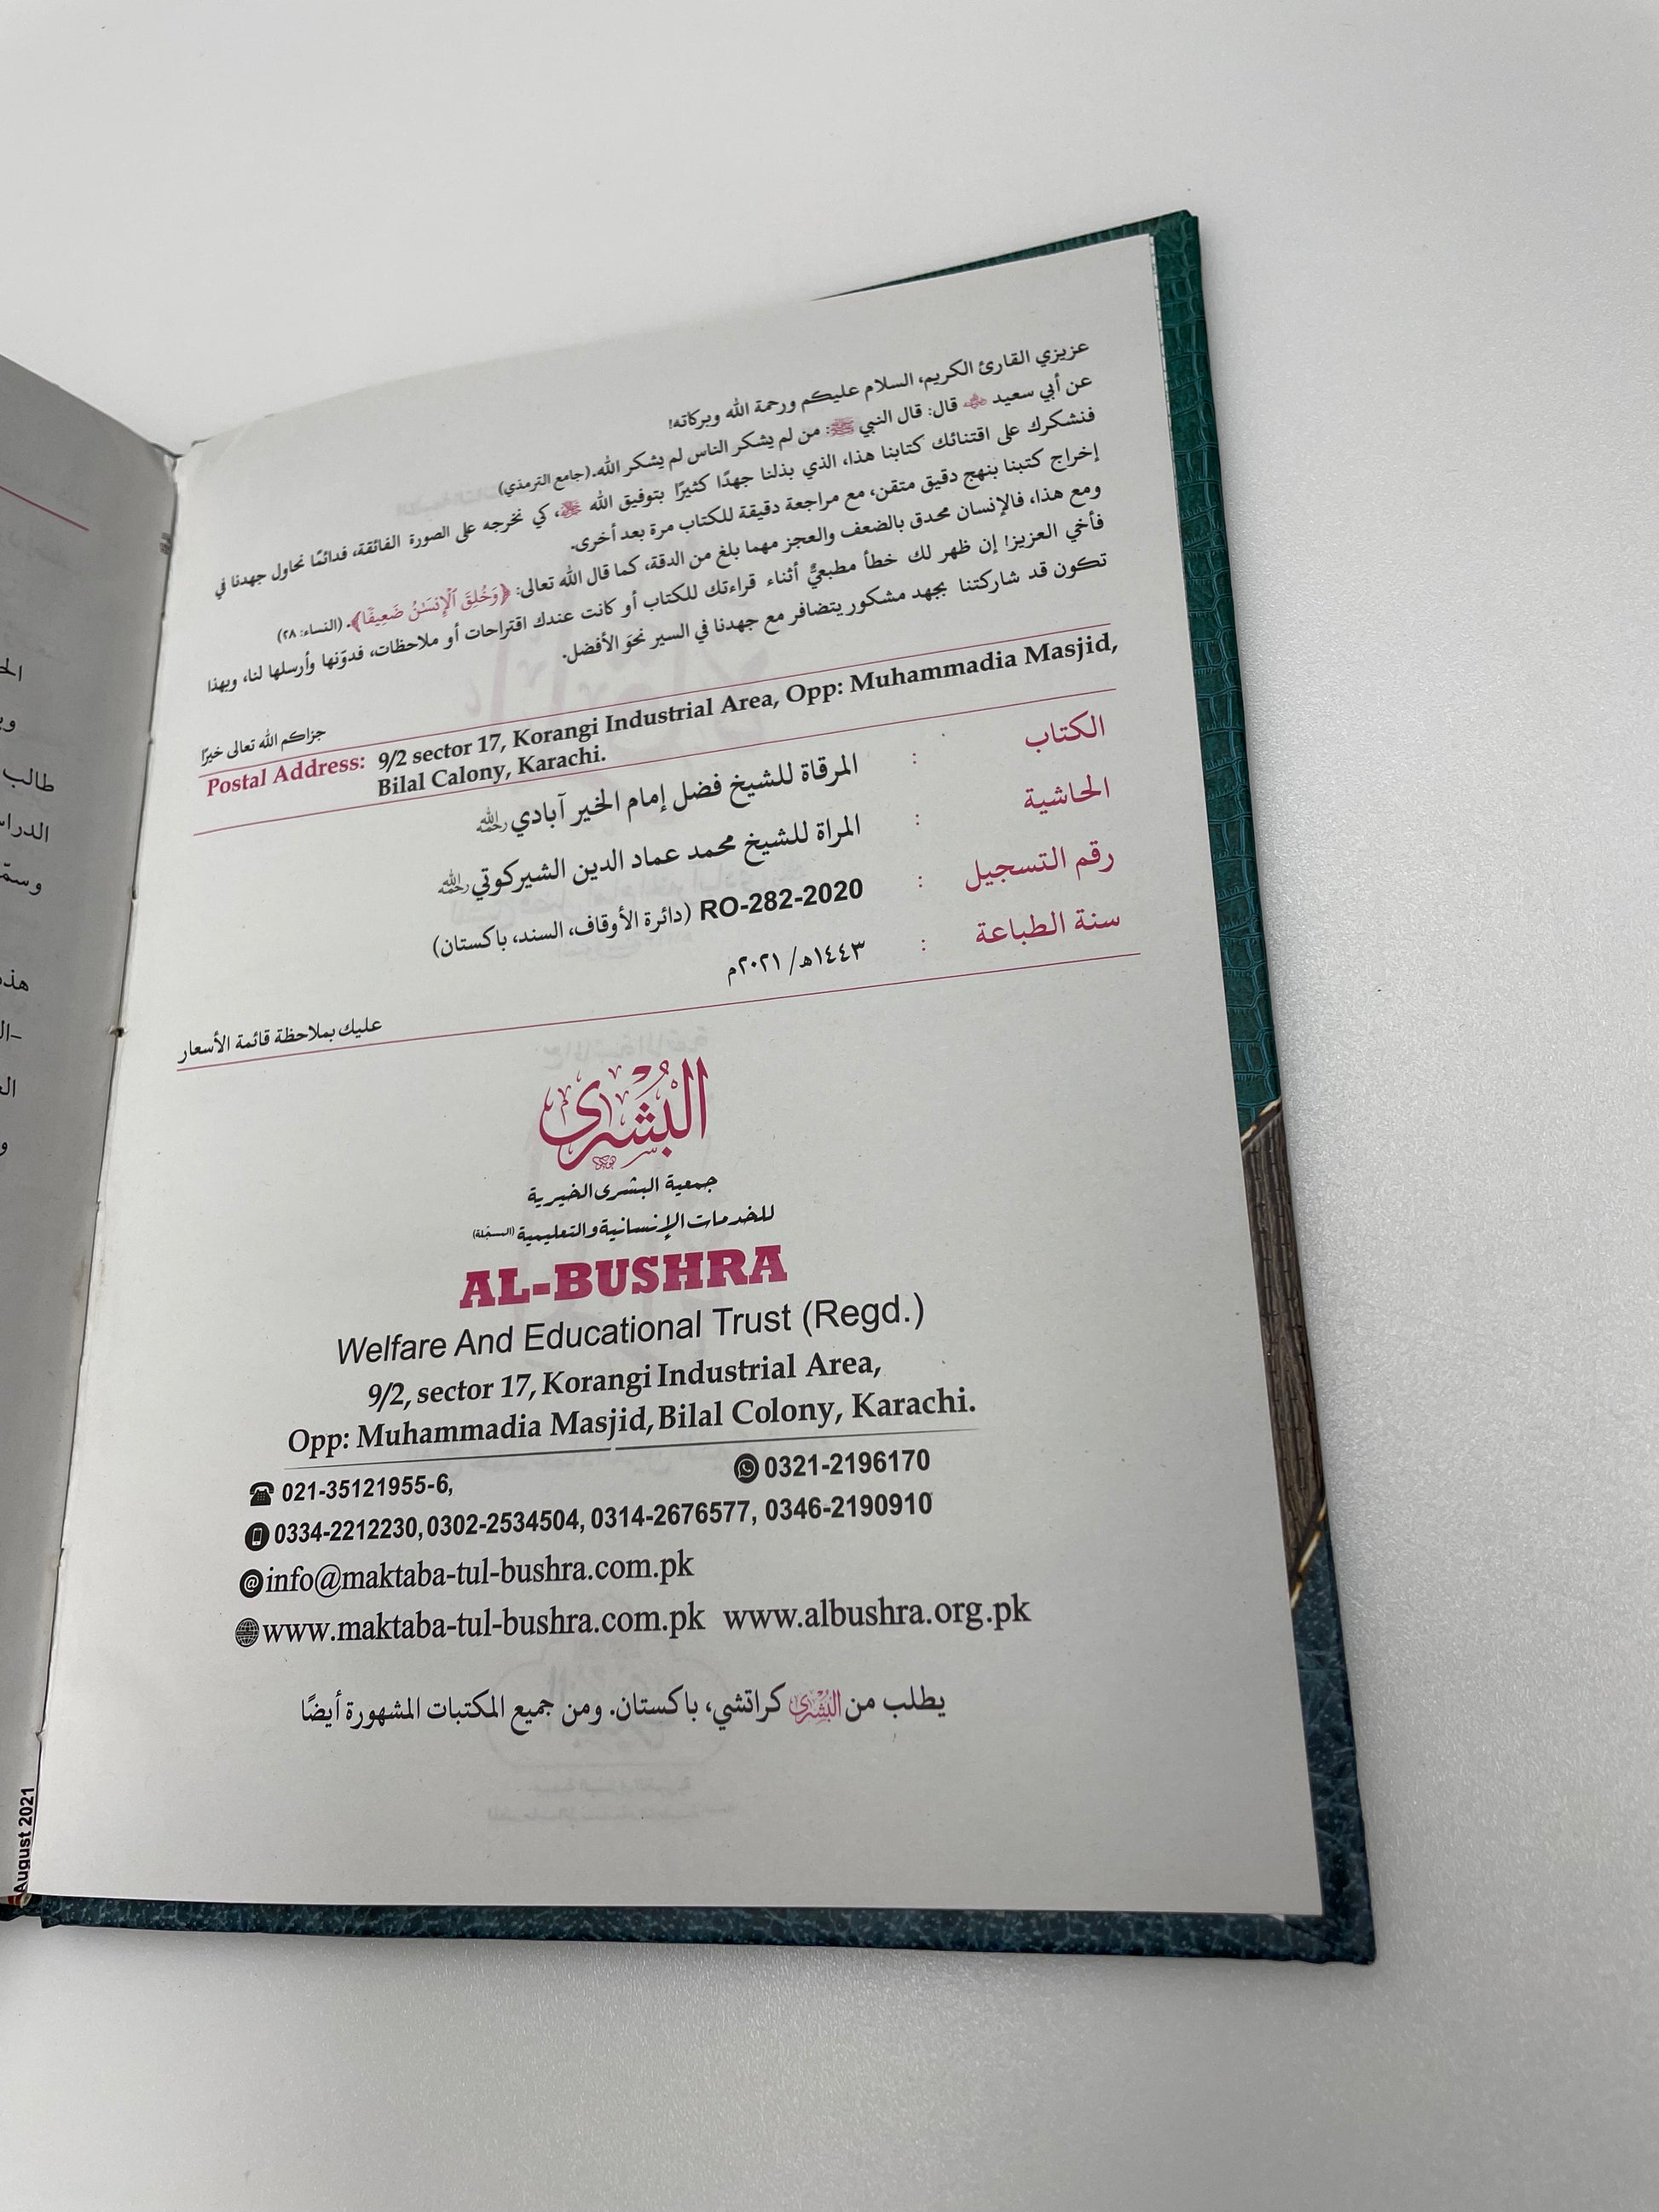 عزيزي القارئ الكريم، السلام عليكم ورحمة الله وبركاته!
عن أبي سعيد ﷺ قال: قال النبي ﷺ: من لم يشكر الناس لم يشكر الله. (جامع الترمذي)
فنشكرك على اقتنائك كتابنا هذا، الذي بذلنا جهدًا كثيرًا بتوفيق الله ﷻ، كي نخرجه على الصورة الفائقة، فدائمًا نحاول جهدنا في
إخراج كتبنا بنهج دقيق متقن، مع مراجعة دقيقة للكتاب مرة بعد أخرى.
ومع هذا، فالإنسان محدق بالضعف والعجز مهما بلغ من الدقة، كما قال الله تعالى: ﴿وَخُلِقَ ٱلْإِنسَـٰنُ ضَعِيفًا﴾. (النساء: ٢٨)
فأخي العزيز! إن ظهر لك خطأ مطبعيٌّ أثناء قراءتك للكتاب أو كانت عندك اقتراحات أو ملاحظات، فدوّنها وأرسلها لنا، وبهذا
تكون قد شاركتنا بجهد مشكور يتضافر مع جهدنا في السير نحوَ الأفضل.
جزاكم الله تعالى خيرًا
Postal Address: 9/2 sector 17, Korangi Industrial Area, Opp: Muhammadia Masjid,
Bilal Calony, Karachi.
الكتاب : المرقاة للشيخ فضل إمام الخير آبادي رحمه الله
الحاشية : المراة للشيخ محمد عماد الدين الشيركوتي رحمه الله
رقم التسجيل : RO-282-2020 (دائرة الأوقاف، السند، باكستان)
سنة الطباعة : ١٤٤٣هـ/ ٢٠٢١م
عليك بملاحظة قائمة الأسعار
البُشرى
جمعية البشرى الخيرية
للخدمات الإنسانية والتعليمية (المسجّلة)
AL-BUSHRA
Welfare And Educational Trust (Regd.)
9/2, sector 17, Korangi Industrial Area,
Opp: Muhammadia Masjid, Bilal Colony, Karachi.
021-35121955-6, 0321-2196170
0334-2212230, 0302-2534504, 0314-2676577, 0346-2190910
info@maktaba-tul-bushra.com.pk
www.maktaba-tul-bushra.com.pk www.albushra.org.pk
يطلب من البُشرى كراتشي، باكستان. ومن جميع المكتبات المشهورة أيضًا
August 2021
طالب
وسمّ
هذه